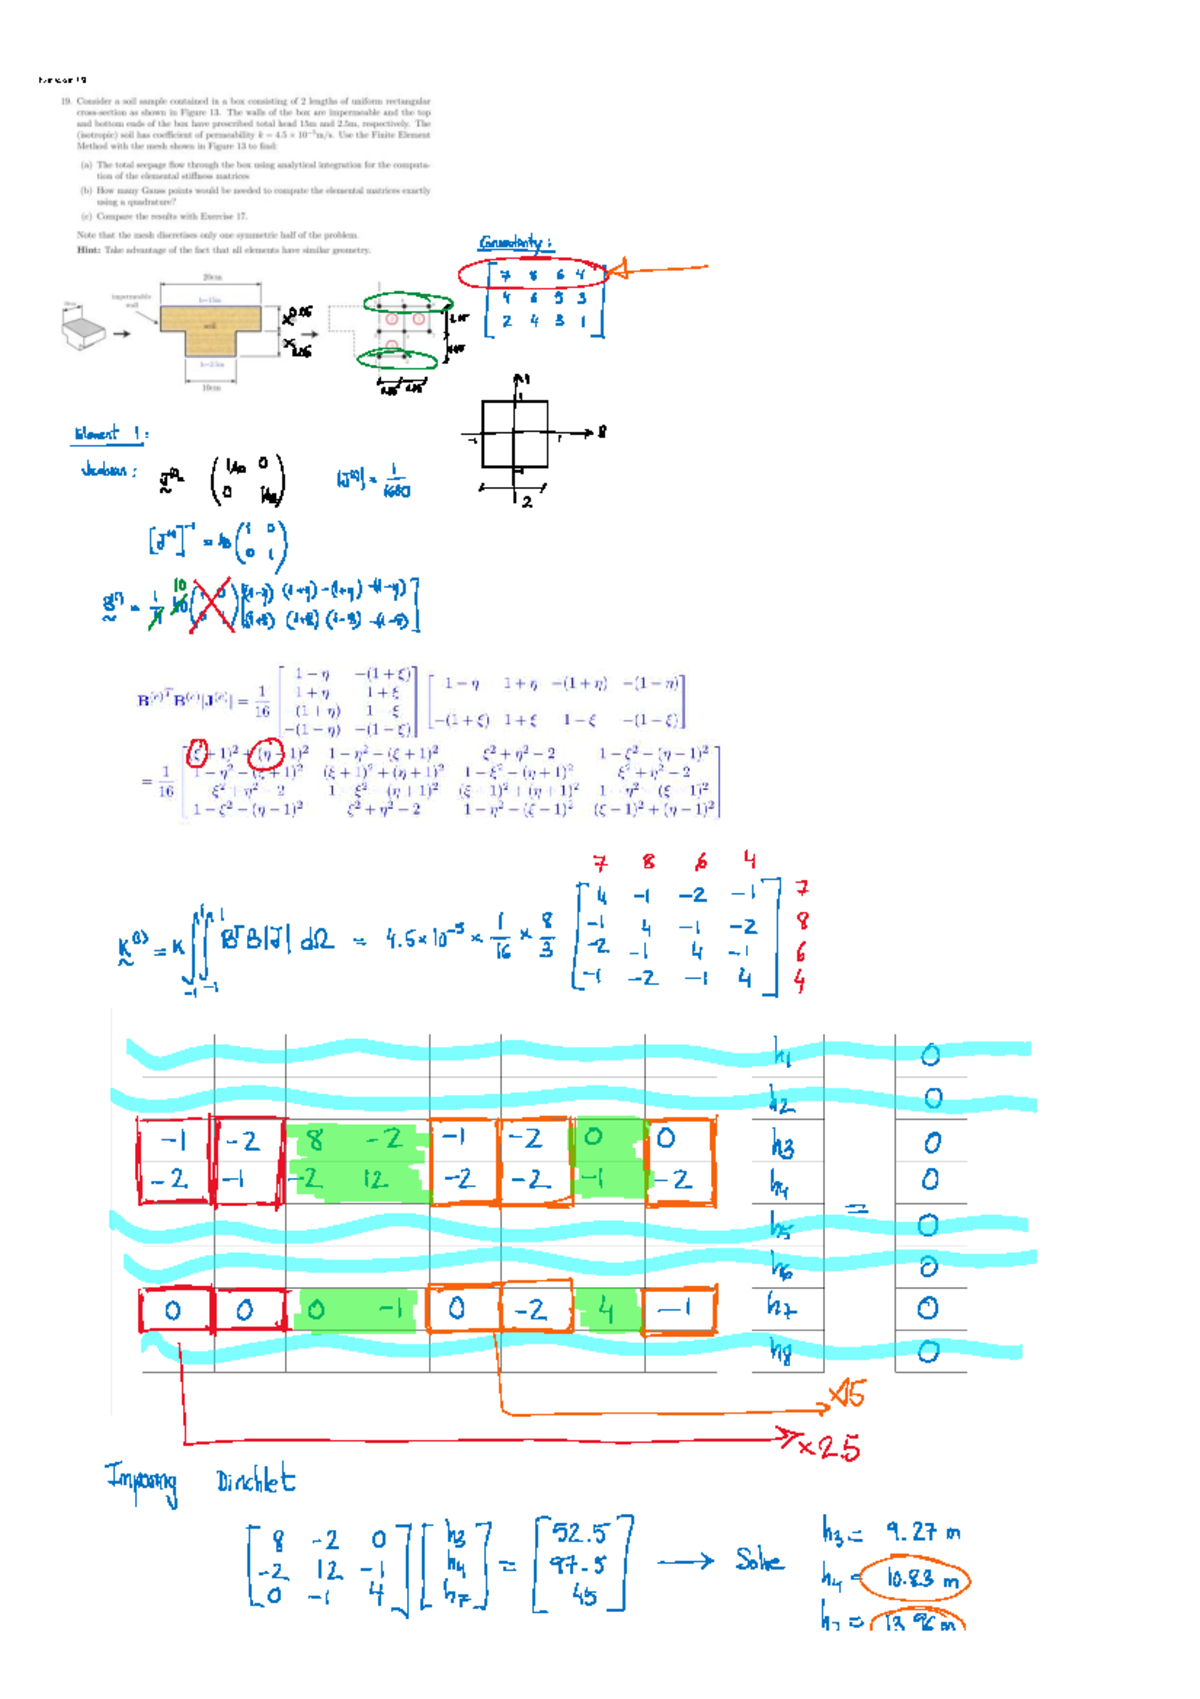 19. Consider a soil sample contained in a box consisting of 2 lengths of uniform rectangular
cross-section as shown in Figure 13. The walls of the box are impermeable and the top
and bottom ends of the box have prescribed total head 15m and 2.5m, respectively. The
(isotropic) soil has coefficient of permeability k = 4.5 × 10⁻⁵m/s. Use the Finite Element
Method with the mesh shown in Figure 13 to find:
(a) The total seepage flow through the box using analytical integration for the computa-
tion of the elemental stiffness matrices
(b) How many Gauss points would be needed to compute the elemental matrices exactly
using a quadrature?
(c) Compare the results with Exercise 17.
Note that the mesh discretises only one symmetric half of the problem.
Hint: Take advantage of the fact that all elements have similar geometry.
Connectivity:
7 8 6 4
4 6 5 3
2 4 3 1
20cm
impermeable
wall
h=15m
soil
h=2.5m
10cm
Element 1:
Jacobian:
|J⁽¹⁾| = 1/1600
B⁽ᵉ⁾ᵀ B⁽ᵉ⁾|J⁽ᵉ⁾| = 1/16
1 − η −(1 + ξ)
1 + η 1 + ξ
−(1 + η) 1 − ξ
−(1 − η) −(1 − ξ)
1 − η 1 + η −(1 + η) −(1 − η)
−(1 + ξ) 1 + ξ 1 − ξ −(1 − ξ)
= 1/16
(ξ + 1)² + (η − 1)² 1 − η² − (ξ + 1)² ξ² + η² − 2 1 − ξ² − (η − 1)²
1 − η² − (ξ + 1)² (ξ + 1)² + (η + 1)² 1 − ξ² − (η + 1)² ξ² + η² − 2
ξ² + η² − 2 1 − ξ² − (η + 1)² (ξ − 1)² + (η + 1)² 1 − η² − (ξ − 1)²
1 − ξ² − (η − 1)² ξ² + η² − 2 1 − η² − (ξ − 1)² (ξ − 1)² + (η − 1)²
7 8 6 4
K⁽¹⁾ = K ∫∫ BᵀB|J| dΩ = 4.5×10⁻⁵ × 1/16 × 8/3
4 −1 −2 −1 7
−1 4 −1 −2 8
−2 −1 4 −1 6
−1 −2 −1 4 4
h1 0
h2 0
−1 −2 8 −2 −1 −2 0 0 h3 0
−2 −1 −2 12 −2 −2 −1 −2 h4 = 0
h5 0
h6 0
0 0 0 −1 0 −2 4 −1 h7 0
h8 0
×15
×2.5
Imposing Dirichlet
8 −2 0 h3 52.5
−2 12 −1 h4 = 97.5 → Solve
0 −1 4 h7 45
h3 = 9.27 m
h4 = 10.83 m
h7 = 13.96 m